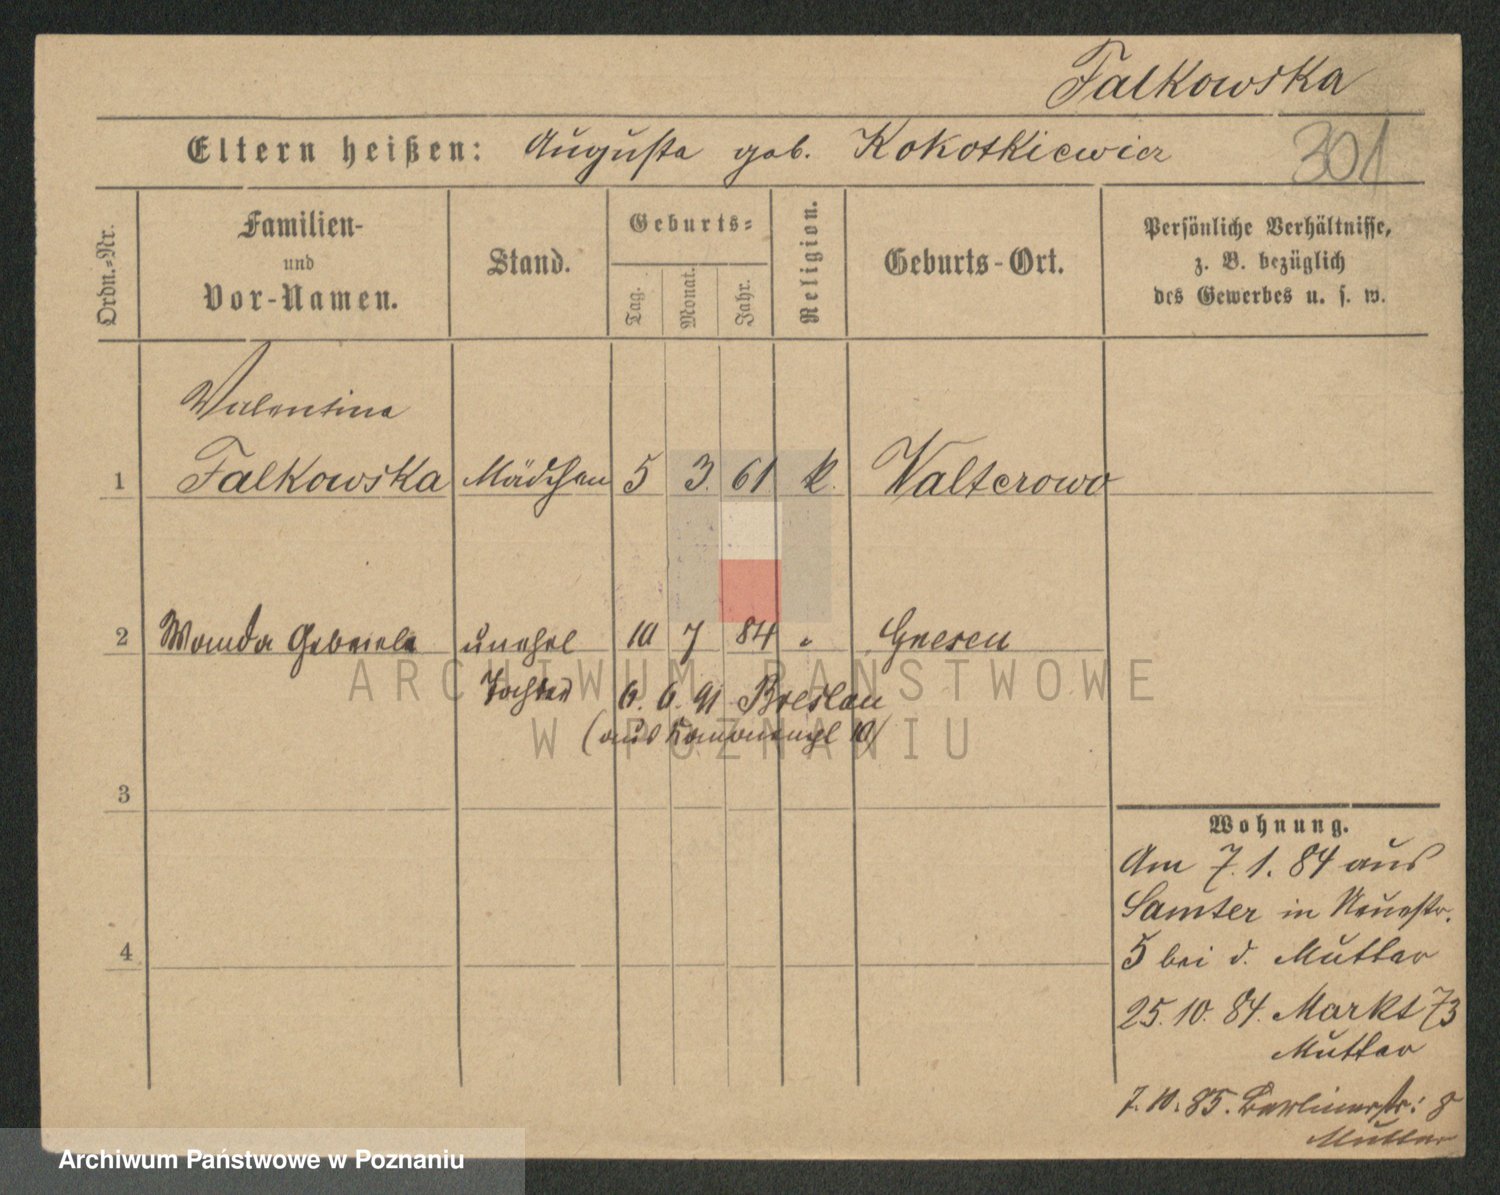 Falkowska
Eltern heißen: Augusta geb. Kokotkiewicz
301
Ordn.-Nr.
Familien-
und
Vor-Namen.
Stand.
Geburts-
Tag.
Monat.
Jahr.
Religion.
Geburts-Ort.
Persönliche Verhältnisse,
z. B. bezüglich
des Gewerbes u. s. w.
Valentina
1 Falkowska Mädchen 5 3. 61 k. Walterowo
2 Wanda Gabriele unehel 10 7 84 " Gnesen
Tochter 6. 6. 91 Breslau
(aus
3
4
Wohnung.
Am 7. 1. 84 aus
Samter in Neuestr.
5 bei d. Mutter
25. 10. 84. Markt 73
Mutter
7. 10. 85. Berlinerstr: 8
Mutter
ARCHIWUM PAŃSTWOWE
W POZNANIU
Archiwum Państwowe w Poznaniu